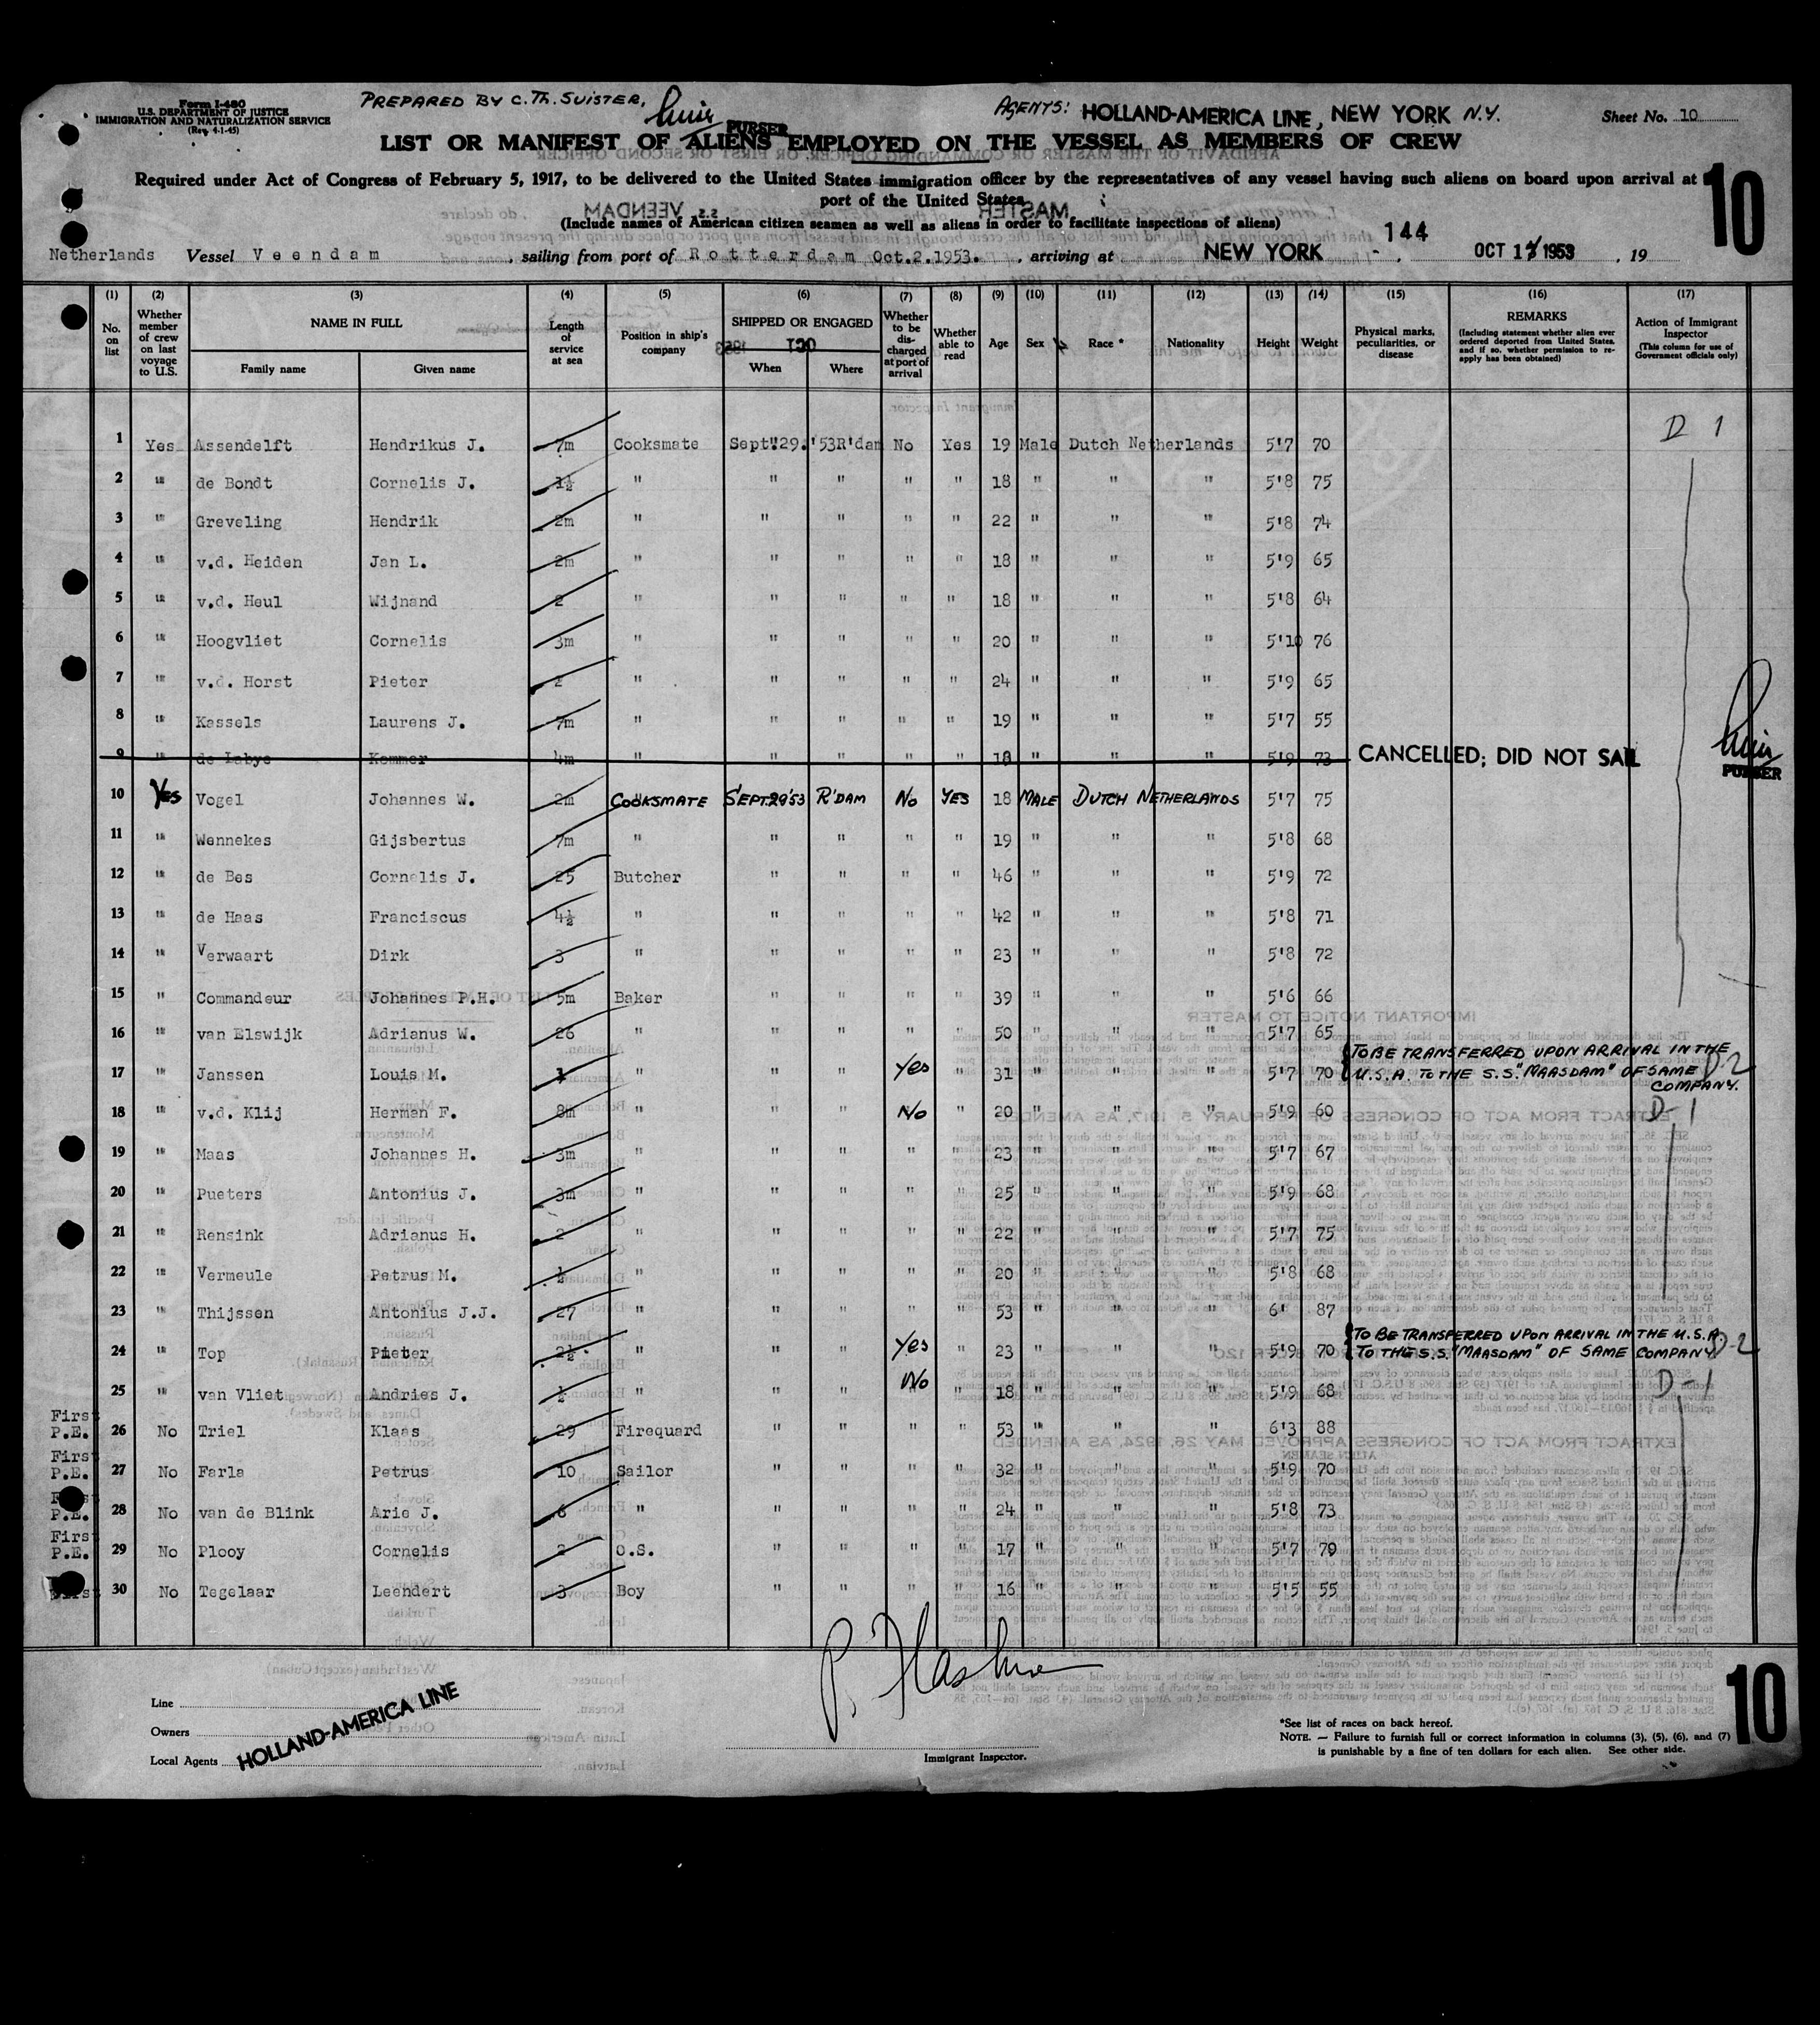 Form I-480
U.S. DEPARTMENT OF JUSTICE
IMMIGRATION AND NATURALIZATION SERVICE
(Rev. 4-1-45)
PREPARED BY C.Th. SUISTER,
PURSER
AGENTS: HOLLAND-AMERICA LINE, NEW YORK N.Y.
Sheet No. 10
LIST OR MANIFEST OF ALIENS EMPLOYED ON THE VESSEL AS MEMBERS OF CREW
Required under Act of Congress of February 5, 1917, to be delivered to the United States immigration officer by the representatives of any vessel having such aliens on board upon arrival at
port of the United States
(Include names of American citizen seamen as well as aliens in order to facilitate inspections of aliens)
10
144
Netherlands Vessel Veendam, sailing from port of Rotterdam Oct.2.1953., arriving at NEW YORK, OCT 1 1953, 19
(1) (2) (3) (4) (5) (6) (7) (8) (9) (10) (11) (12) (13) (14) (15) (16) (17)
No. on list | Whether member of crew on last voyage to U.S. | NAME IN FULL | Family name | Given name | Length of service at sea | Position in ship's company | SHIPPED OR ENGAGED | When | Where | Whether to be discharged at port of arrival | Whether able to read | Age | Sex | Race * | Nationality | Height | Weight | Physical marks, peculiarities, or disease | REMARKS (Including statement whether alien ever ordered deported from United States, and if so, whether permission to reapply has been obtained) | Action of Immigrant Inspector (This column for use of Government officials only)
1 Yes Assendelft Hendrikus J. 7m Cooksmate Sept"29.'53 R'dam No Yes 19 Male Dutch Netherlands 5'7 70 D 1
2 " de Bondt Cornelis J. 1½ " " " " " 18 " " " 5'8 75
3 " Greveling Hendrik 2m " " " " " 22 " " " 5'8 74
4 " v.d. Heiden Jan L. 2m " " " " " 18 " " " 5'9 65
5 " v.d. Heul Wijnand 2 " " " " " 18 " " " 5'8 64
6 " Hoogvliet Cornelis 3m " " " " " 20 " " " 5'10 76
7 " v.d. Horst Pieter 2 " " " " " 24 " " " 5'9 65
8 " Kassels Laurens J. 7m " " " " " 19 " " " 5'7 55
9 " de Labye Kommer 4m " " " " " 18 " " " 5'9 73 CANCELLED; DID NOT SAIL
PURSER
10 Yes Vogel Johannes W. 2m COOKSMATE SEPT.29'53 R'DAM No YES 18 MALE DUTCH NETHERLANDS 5'7 75
11 " Wennekes Gijsbertus 7m " " " " " 19 " " " 5'8 68
12 " de Bes Cornelis J. 25 Butcher " " " " 46 " " " 5'9 72
13 " de Haas Franciscus 4½ " " " " " 42 " " " 5'8 71
14 " Verwaart Dirk 3 " " " " " 23 " " " 5'8 72
15 " Commandeur Johannes P.H. 5m Baker " " " " 39 " " " 5'6 66
16 " van Elswijk Adrianus W. 26 " " " " " 50 " " " 5'7 65
17 " Janssen Louis M. " " " Yes " 31 " " " 5'7 70 TO BE TRANSFERRED UPON ARRIVAL IN THE
U.S.A. TO THE S.S. "MAASDAM" OF SAME D-2
COMPANY.
18 " v.d. Klij Herman F. 8m " " " No " 20 " " " 5'9 60 D-1
19 " Maas Johannes H. 3m " " " " " 23 " " " 5'7 67
20 " Pueters Antonius J. 3m " " " " " 25 " " " 5'9 68
21 " Rensink Adrianus H. 2 " " " " " 22 " " " 5'7 75
22 " Vermeule Petrus M. ½ " " " " " 20 " " " 5'8 68
23 " Thijssen Antonius J.J. 27 " " " " " 53 " " " 6' 87
24 " Top Pieter 2½ " " " Yes " 23 " " " 5'9 70 TO BE TRANSFERRED UPON ARRIVAL IN THE U.S.A.
TO THE S.S. "MAASDAM" OF SAME COMPANY D-2
25 " van Vliet Andries J. ½ " " " No " 18 " " " 5'9 68 D-1
First
P.E. 26 No Triel Klaas 29 Fireguard " " " " 53 " " " 6'3 88
First
P.E. 27 No Farla Petrus 10 Sailor " " " " 32 " " " 5'9 70
First
P.E. 28 No van de Blink Arie J. 6 " " " " " 24 " " " 5'8 73
First
P.E. 29 No Plooy Cornelis 2 O.S. " " " " 17 " " " 5'7 70
First 30 No Tegelaar Leendert 3 Boy " " " " 16 " " " 5'5 55
Line
Owners
Local Agents
HOLLAND-AMERICA LINE
Immigrant Inspector.
*See list of races on back hereof.
NOTE. — Failure to furnish full or correct information in columns (3), (5), (6), and (7)
is punishable by a fine of ten dollars for each alien. See other side.
10